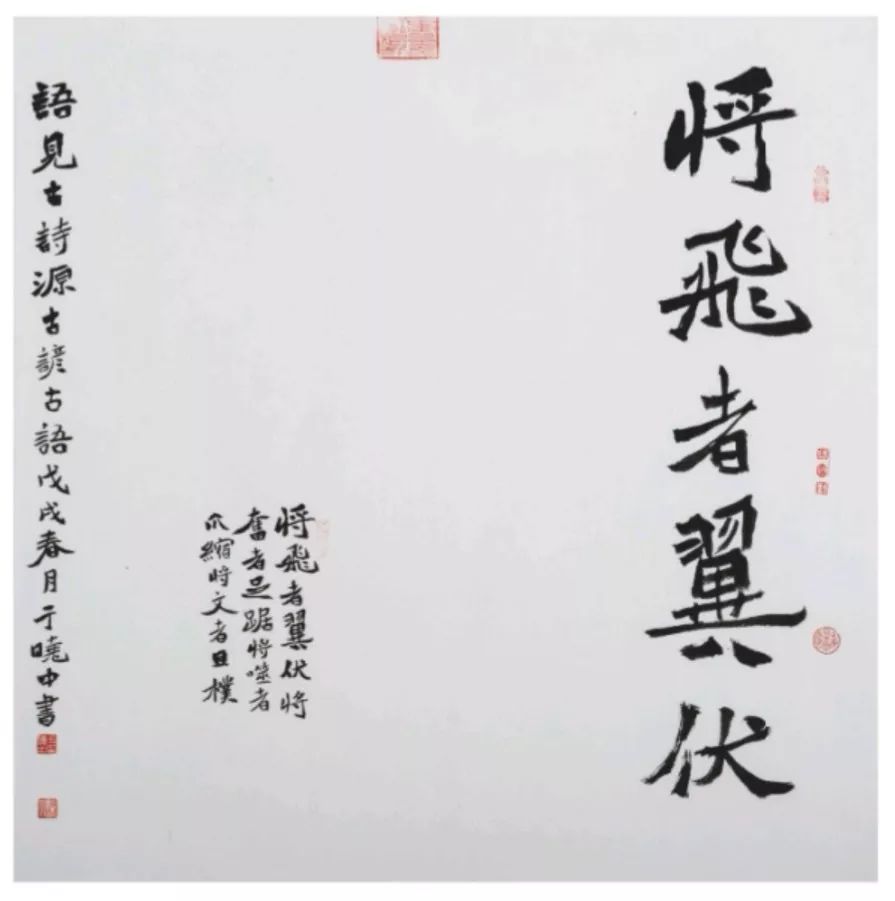 将飛者翼伏
将飛者翼伏将
奮者足踞将噬者
爪縮将文者且樸
語見古詩源古諺古語戊戌春月于曉中書